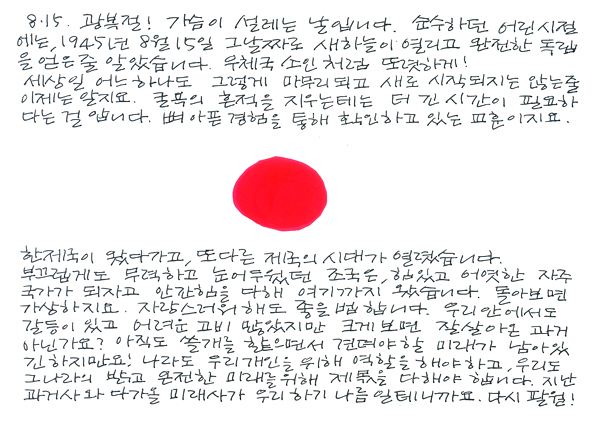 8·15. 광복절! 가슴이 설레는 날입니다. 순수하던 어린시절
에는, 1945년 8월 15일 그날짜로 새하늘이 열리고 완전한 독립
을 얻은줄 알았습니다. 우체국 소인처럼 또렷하게!
세상일 어느하나도 그렇게 마무리되고 새로 시작되지는 않는줄
이제는 알지요. 굴욕의 흔적을 지우는데는 더 긴 시간이 필요하
다는걸 압니다. 뼈아픈 경험을 통해 확인하고 있는 교훈이지요.
한제국이 왔다가고, 또다른 제국의 시대가 열렸습니다.
부끄럽게도 무력하고 눈어두웠던 조국은, 힘있고 어엿한 자주
국가가 되자고 안간힘을 다해 여기까지 왔습니다. 돌아보면
가상하지요. 자랑스러워해도 좋을법 합니다. 우리안에서도
갈등이 있고 어려운 고비 많았지만 크게보면 잘살아온 과거
아닌가요? 아직도 쓸개를 핥으면서 견뎌야할 미래가 남아있
긴 하지만요! 나라도 우리개인을 위해 역할을 해야하고, 우리도
그나라의 밝고 온전한 미래를위해 제몫을 다해야 합니다. 지난
과거사와 다가올 미래사가 우리 하기 나름일테니까요. 다시 팔월!